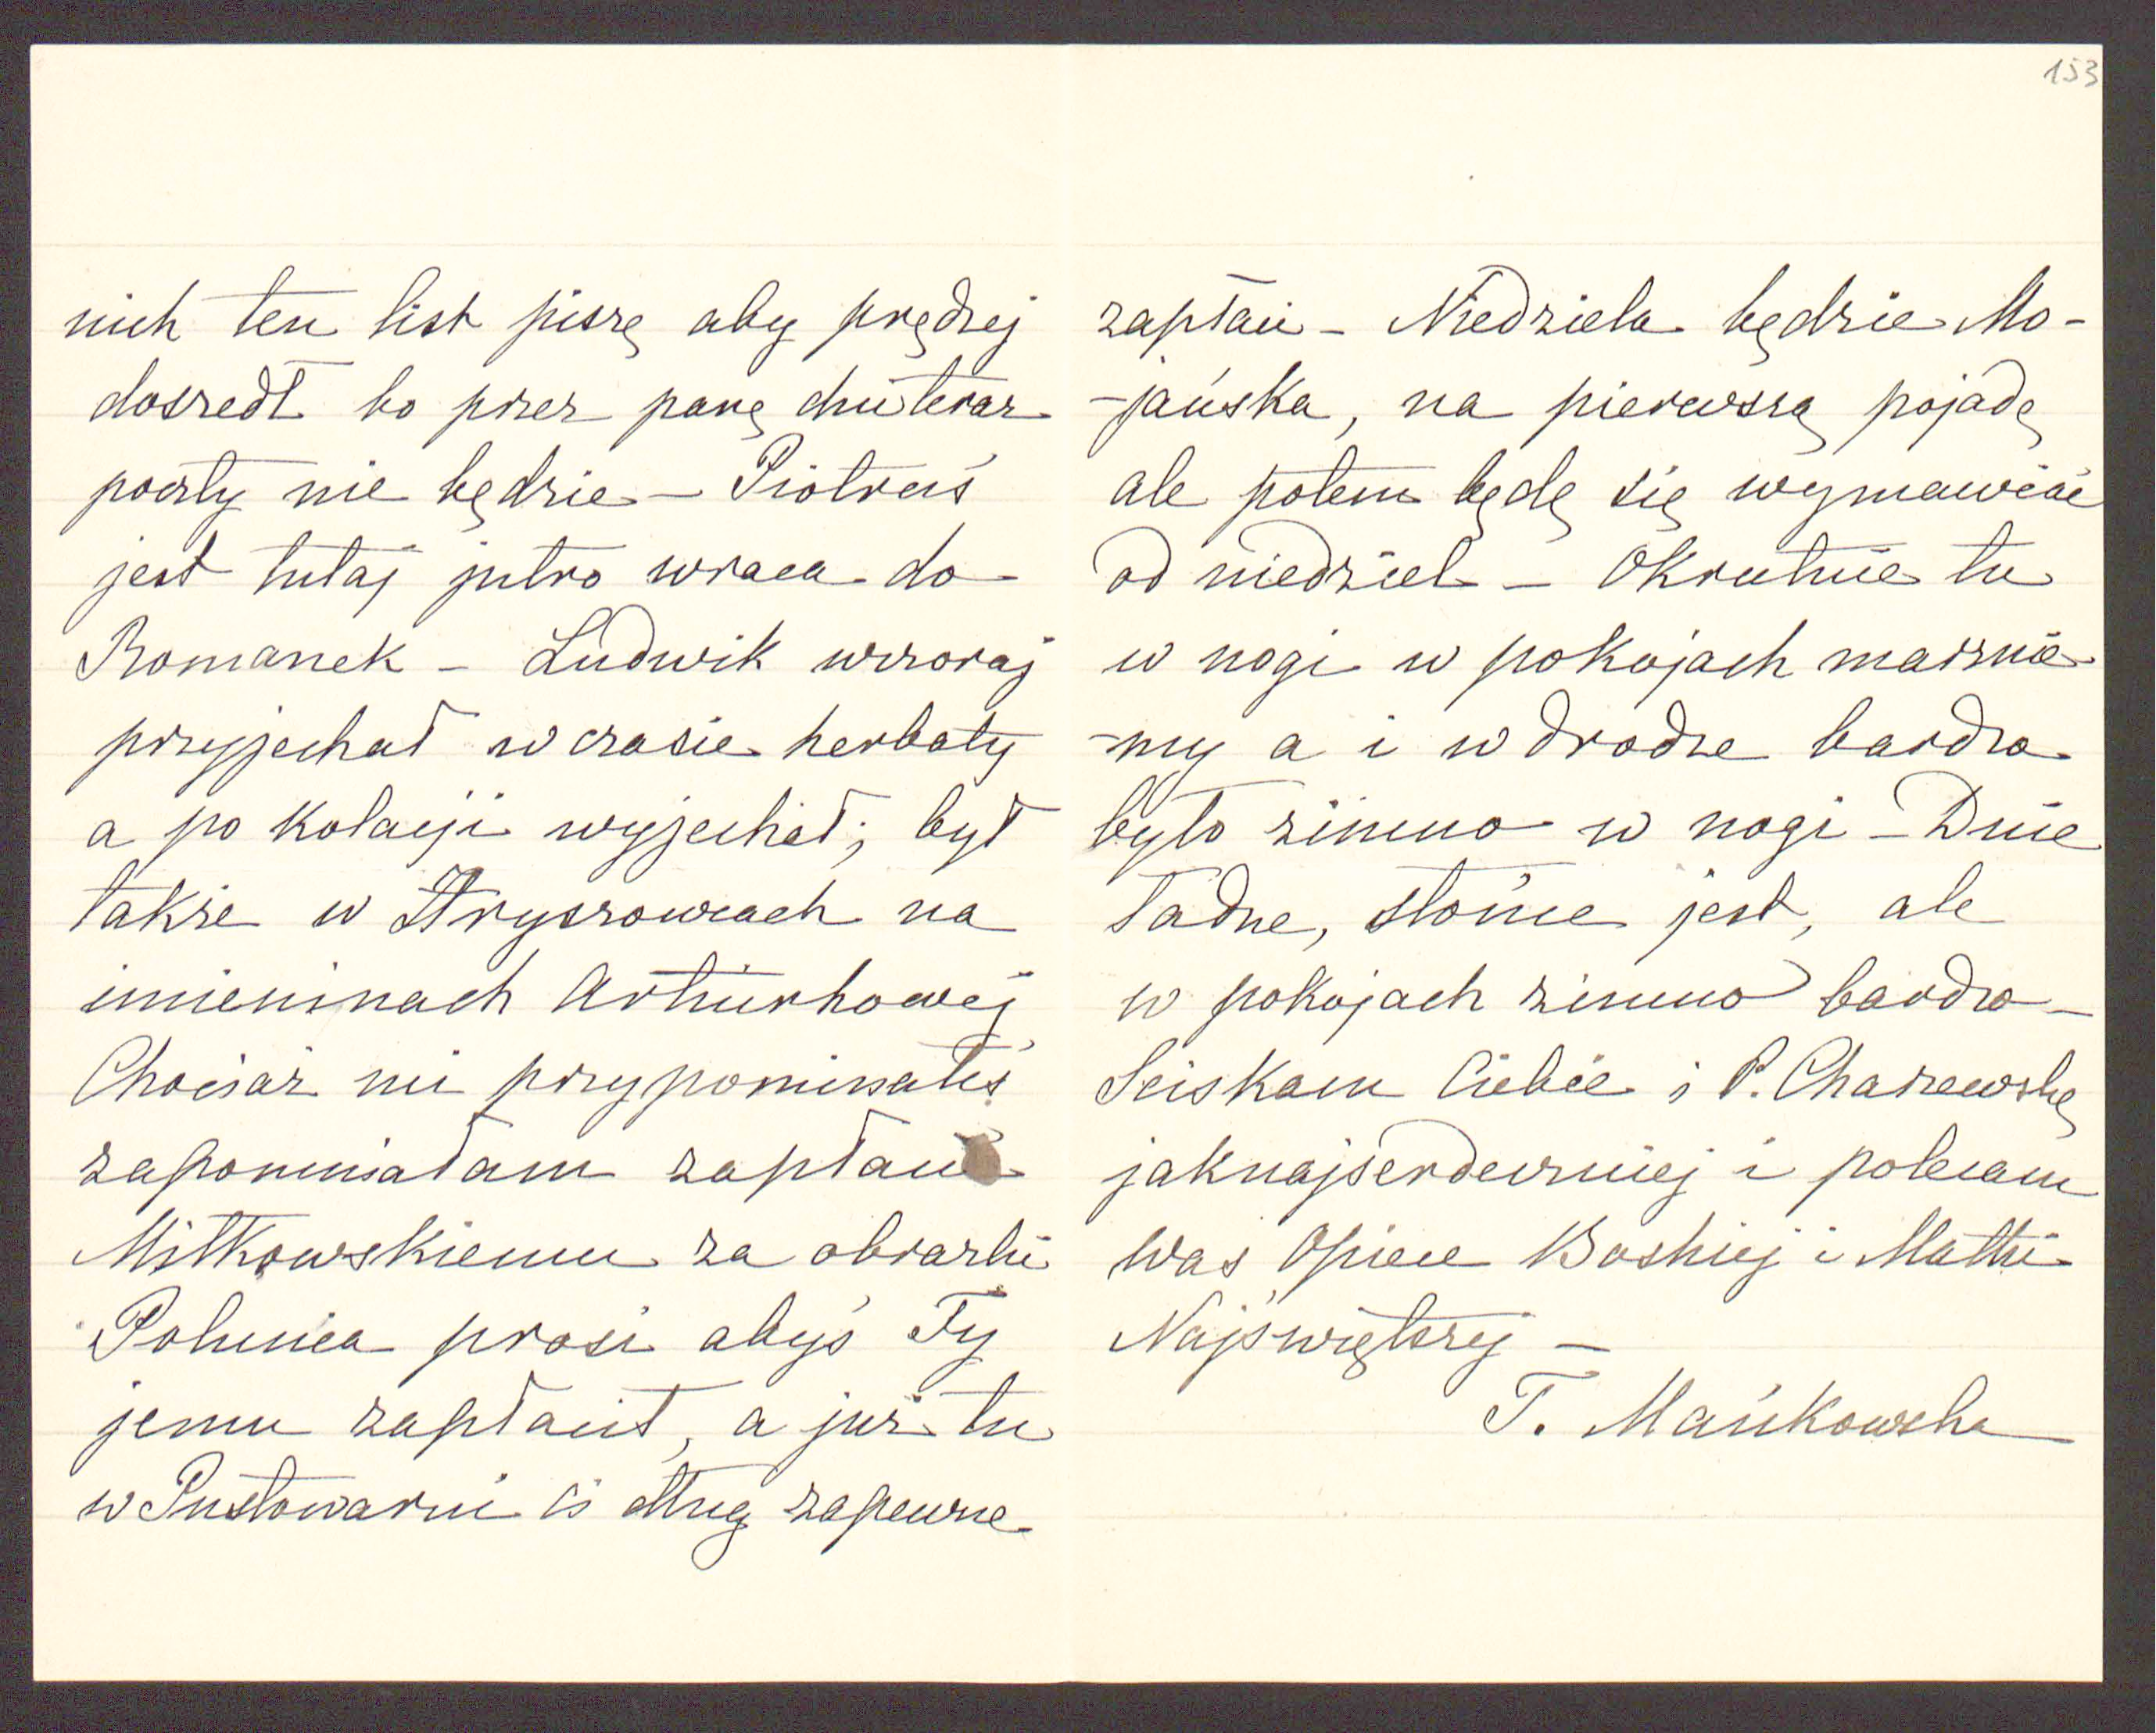 153
nich ten list piszę aby prędzej
doszedł bo przez parę dni teraz
poczty nie będzie – Piotruś
jest tutaj jutro wraca do
Romanek – Ludwik wczoraj
przyjechał w czasie herbaty
a po kolacji wyjechał; był
także w Hryszowcach na
imieninach Arturkowej
Chociaż mi przypominałeś
zapomniałam zapłacić
Miłkowskiemu za obrazki
Polunia prosi abyś Ty
jemu zapłacił, a już tu
w Pustowarni Ci dług zapewne
zapłaci – Niedziela będzie Mo-
-jańska, na pierwszą pojadę
ale potem będę się wymawiać
od niedziel – Okrutnie tu
w nogi w pokojach marznie-
-my a i w drodze bardzo
było zimno w nogi – Dnie
ładne, słońce jest, ale
w pokojach zimno bardzo –
Sciskam Ciebie i P. Charzewską
jaknajserdeczniej i polecam
Was Opiece Boskiej i Matki
Najświętszej –
T. Mańkowska